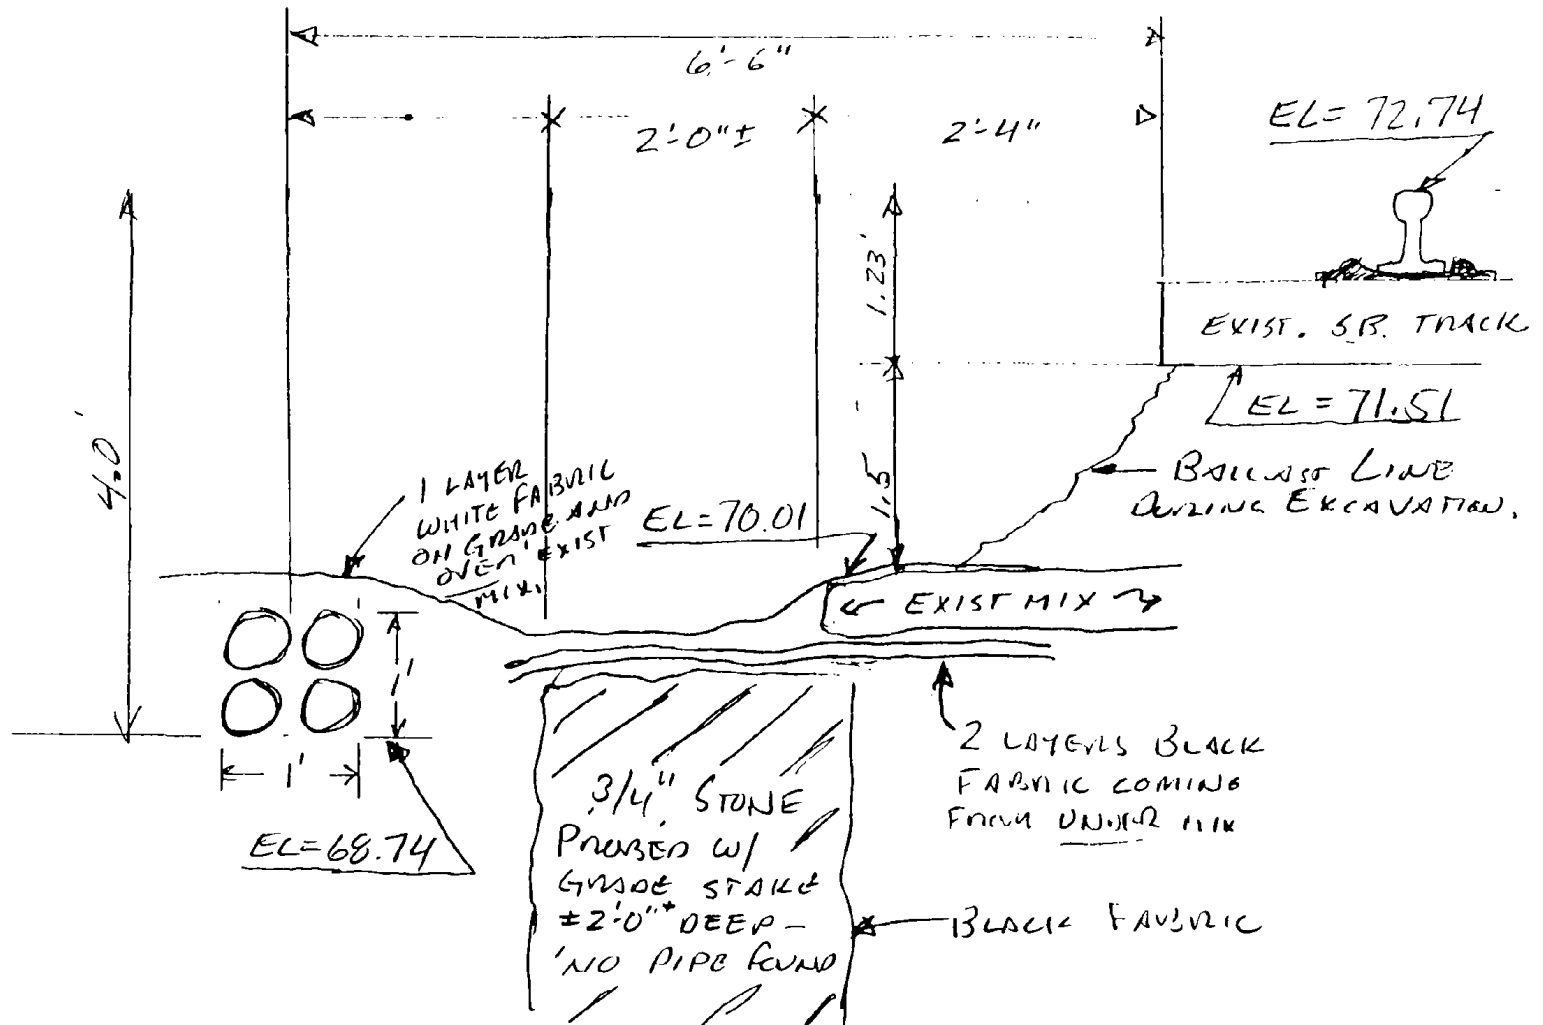 6'-6"
2'-0"±
2'-4"
EL= 72.74
1.23'
EXIST. S.B. TRACK
EL = 71.51
4.0'
1 LAYER
WHITE FABRIC
ON GRADE AND
OVER EXIST
MIX.
EL=70.01
1.5'
BALLAST LINE
DURING EXCAVATION.
← EXIST MIX →
1'
1'
2 LAYERS BLACK
FABRIC COMING
FROM UNDER MIX
EL=68.74
3/4" STONE
PROBED W/
GRADE STAKE
±2'-0"+ DEEP -
NO PIPE FOUND
BLACK FABRIC